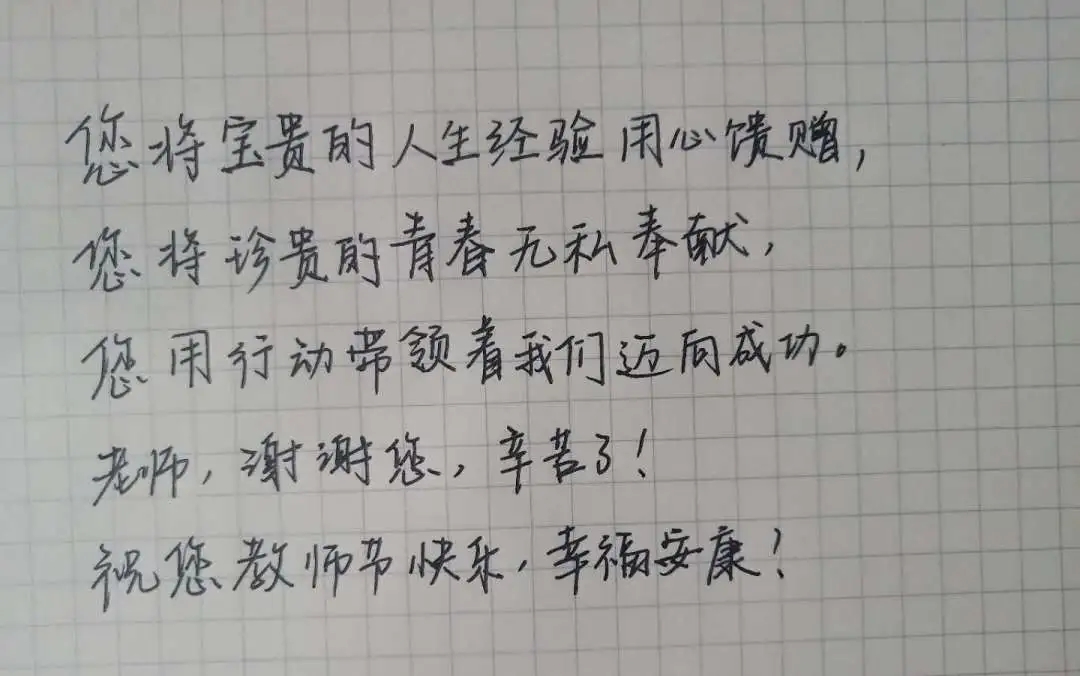 您将宝贵的人生经验用心馈赠，
您将珍贵的青春无私奉献，
您用行动带领着我们迈向成功。
老师，谢谢您，辛苦了！
祝您教师节快乐，幸福安康！